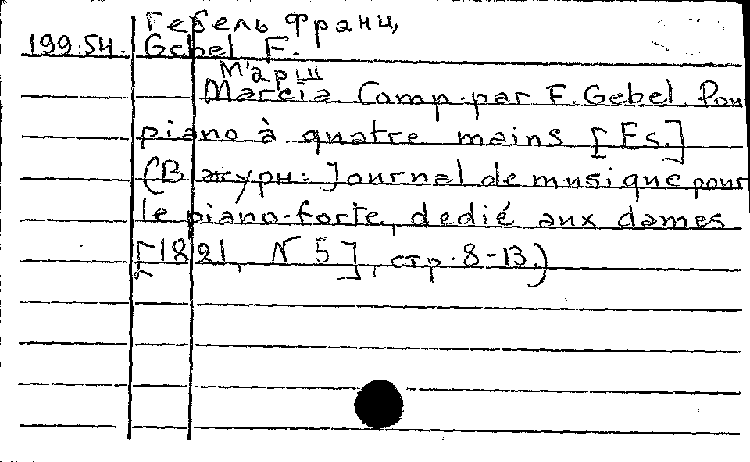 Гебель Франц
199.54. Gebel F.
Марш
Marcia Comp. par F. Gebel. Pour
piano à quatre mains [Es.]
(В журн: Journal de musique pour
le piano-forte, dedié aux dames
[1821, N 5], стр. 8-13.)